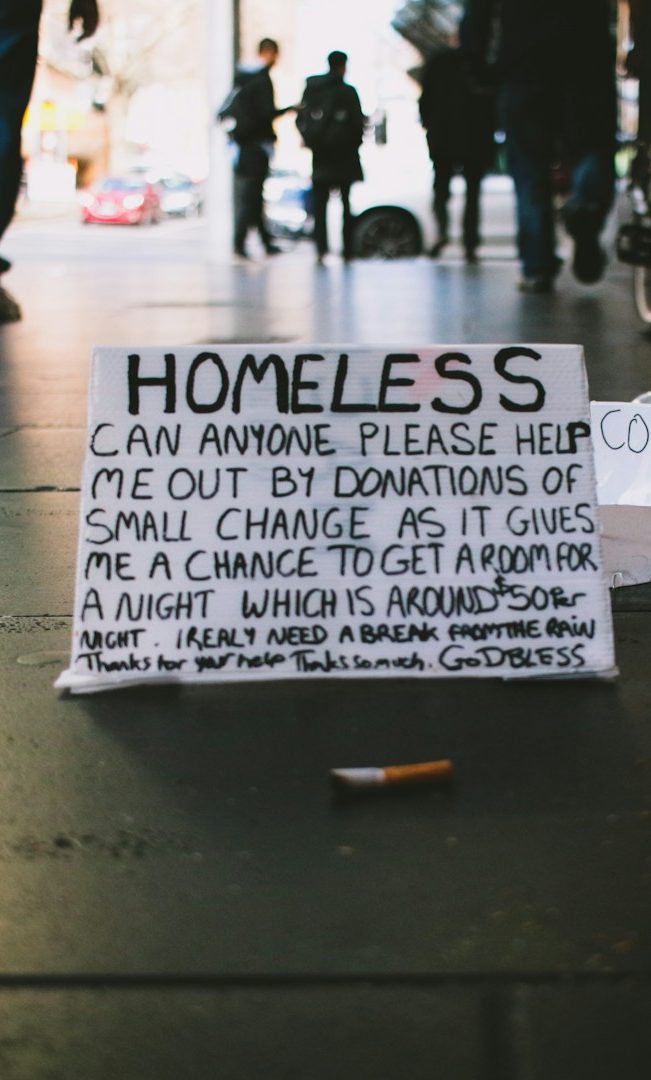 HOMELESS
CAN ANYONE PLEASE HELP
ME OUT BY DONATIONS OF
SMALL CHANGE AS IT GIVES
ME A CHANCE TO GET A ROOM FOR
A NIGHT WHICH IS AROUND $50 Per
NIGHT. I REALY NEED A BREAK FROM THE RAIN
Thanks for your help Thanks so much. GOD BLESS
CO